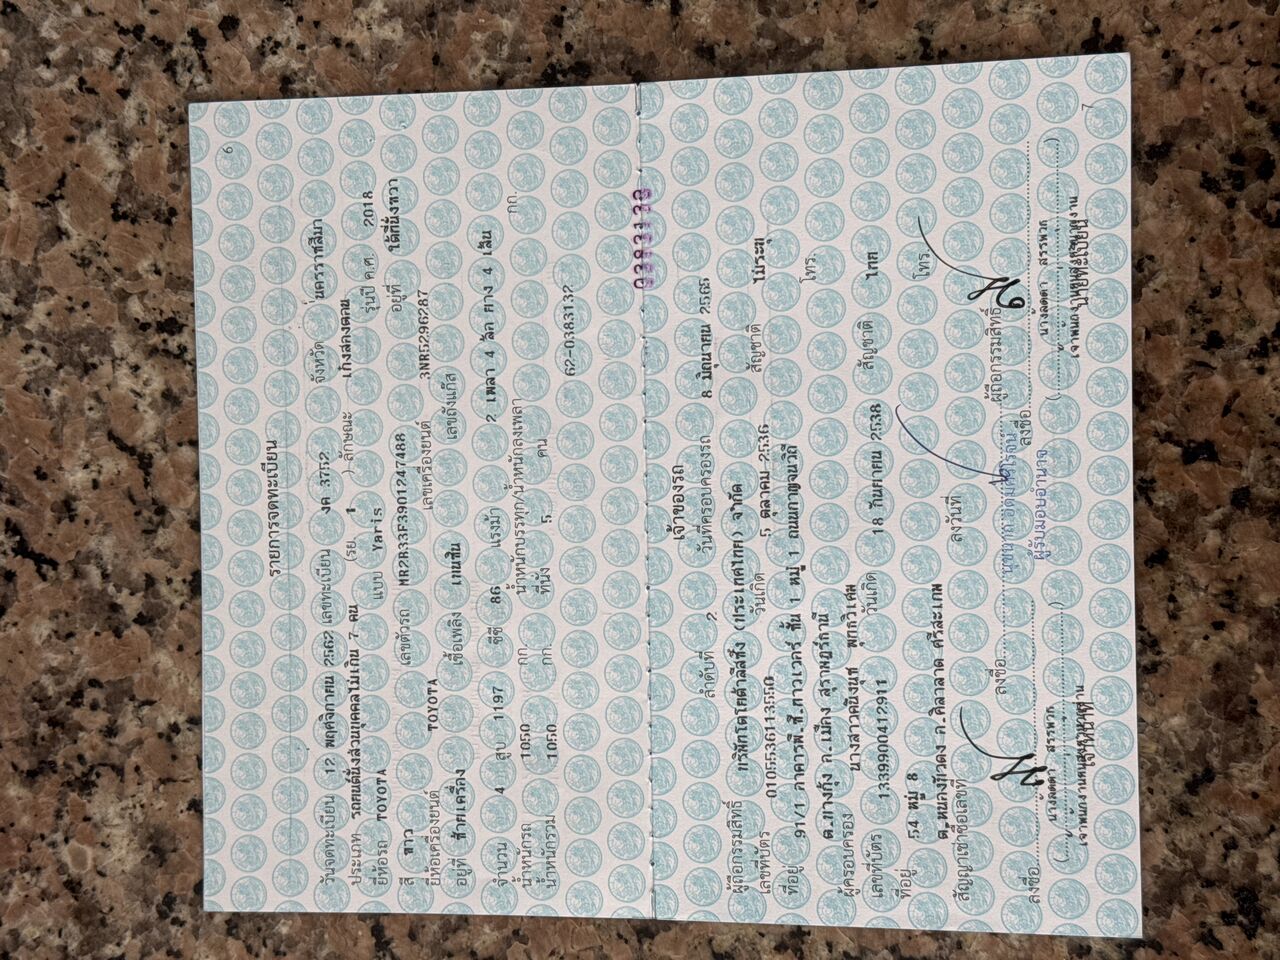 6
รายการจดทะเบียน
วันจดทะเบียน 12 พฤศจิกายน 2562 เลขทะเบียน งค 3752 จังหวัด นครราชสีมา
ประเภท รถยนต์นั่งส่วนบุคคลไม่เกิน 7 คน (รย. 1 ) ลักษณะ เก๋งสองตอน
ยี่ห้อรถ TOYOTA แบบ Yaris รุ่นปี ค.ศ. 2018
สี ขาว เลขตัวรถ MR2R33F3901247488 อยู่ที่ ใต้ที่นั่งขวา
ยี่ห้อเครื่องยนต์ TOYOTA เลขเครื่องยนต์ 3NR5296287
อยู่ที่ ซ้ายเครื่อง เชื้อเพลิง เบนซิน เลขถังแก๊ส
จำนวน 4 สูบ 1197 ซีซี 86 แรงม้า 2 เพลา 4 ล้อ ยาง 4 เส้น
น้ำหนักรถ 1050 กก. น้ำหนักบรรทุก/น้ำหนักลงเพลา กก.
น้ำหนักรวม 1050 กก. ที่นั่ง 5 คน
62-0383132
เจ้าของรถ
ลำดับที่ 2 วันที่ครอบครองรถ 8 มิถุนายน 2565
ผู้ถือกรรมสิทธิ์ บริษัทโตโยต้าลีสซิ่ง (ประเทศไทย) จำกัด
เลขที่บัตร 0105536113550 วันเกิด 5 ตุลาคม 2536 สัญชาติ ไม่ระบุ
ที่อยู่ 91/1 อาคารพี.ซี.ทาวเวอร์ ชั้น 1 หมู่ 1 ถนนกาญจนวิถี
ต.บางกุ้ง อ.เมือง สุราษฎร์ธานี โทร.
ผู้ครอบครอง
เลขที่บัตร 1339900412911 วันเกิด 18 กันยายน 2538 สัญชาติ ไทย
ที่อยู่ 54 หมู่ 8
ต.หนองบัวดง อ.ศิลาลาด ศรีสะเกษ โทร.
สัญญาเช่าซื้อเลขที่ ลงวันที่
ลงชื่อ ผู้ถือกรรมสิทธิ์
ผู้รับมอบอำนาจ
ลงชื่อ ลงชื่อ
(นางลัดดา สรรพวก) (นางลัดดา สรรพวก)
เจ้าหน้าที่ นายทะเบียน
7